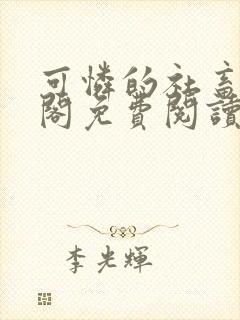 可憐的社畜
閣免費閱讀
李光輝